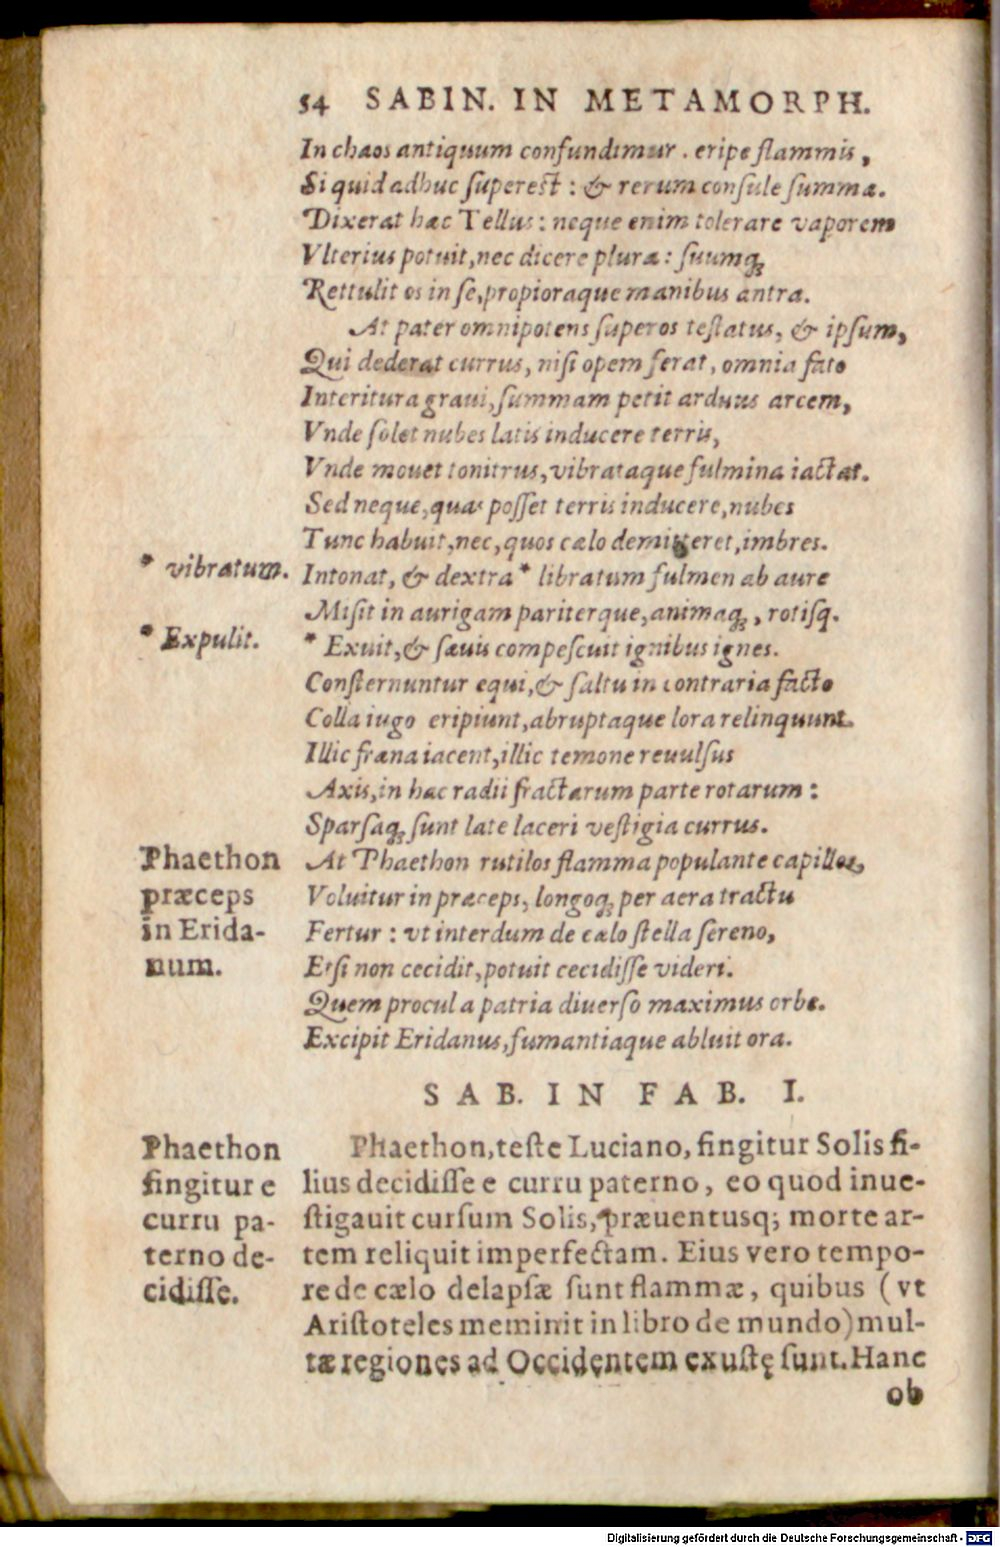 54 SABIN. IN METAMORPH.
In chaos antiquum confundimur. eripe flammis,
Si quid adhuc ſupereſt: & rerum conſule ſummæ.
Dixerat hæc Tellus: neque enim tolerare vaporem
Vlterius potuit, nec dicere plura: ſuumq́ꝫ
Rettulit os in ſe, propioraque manibus antra.
At pater omnipotens ſuperos teſtatus, & ipſum,
Qui dederat currus, niſi opem ferat, omnia fato
Interitura graui, ſummam petit arduus arcem,
Vnde ſolet nubes latis inducere terris,
Vnde mouet tonitrus, vibrataque fulmina iactat.
Sed neque, quas poſſet terris inducere, nubes
Tunc habuit, nec, quos cælo demitteret, imbres.
* vibratum.
Intonat, & dextra * libratum fulmen ab aure
Miſit in aurigam pariterque, animaq́ꝫ, rotiſq.
* Expulit.
* Exuit, & ſæuis compeſcuit ignibus ignes.
Conſternuntur equi, & ſaltu in contraria facto
Colla iugo eripiunt, abruptaque lora relinquunt.
Illic fræna iacent, illic temone reuulſus
Axis, in hac radii fractarum parte rotarum:
Sparſaq́ꝫ ſunt late laceri veſtigia currus.
Phaethon
præceps
in Erida-
num.
At Phaethon rutilos flamma populante capillos,
Voluitur in præceps, longoq́ꝫ per aera tractu
Fertur: vt interdum de cælo ſtella ſereno,
Etſi non cecidit, potuit cecidiſſe videri.
Quem procul a patria diuerſo maximus orbe.
Excipit Eridanus, fumantiaque abluit ora.
SAB. IN FAB. I.
Phaethon
fingitur e
curru pa-
terno de-
cidiſſe.
Phaethon, teſte Luciano, fingitur Solis fi-
lius decidiſſe e curru paterno, eo quod inue-
ſtigauit curſum Solis, præuentusq; morte ar-
tem reliquit imperfectam. Eius vero tempo-
re de cælo delapſæ ſunt flammæ, quibus (vt
Ariſtoteles meminit in libro de mundo) mul-
tæ regiones ad Occidentem exuſtę ſunt. Hanc
ob
Digitalisierung gefördert durch die Deutsche Forschungsgemeinschaft - DFG